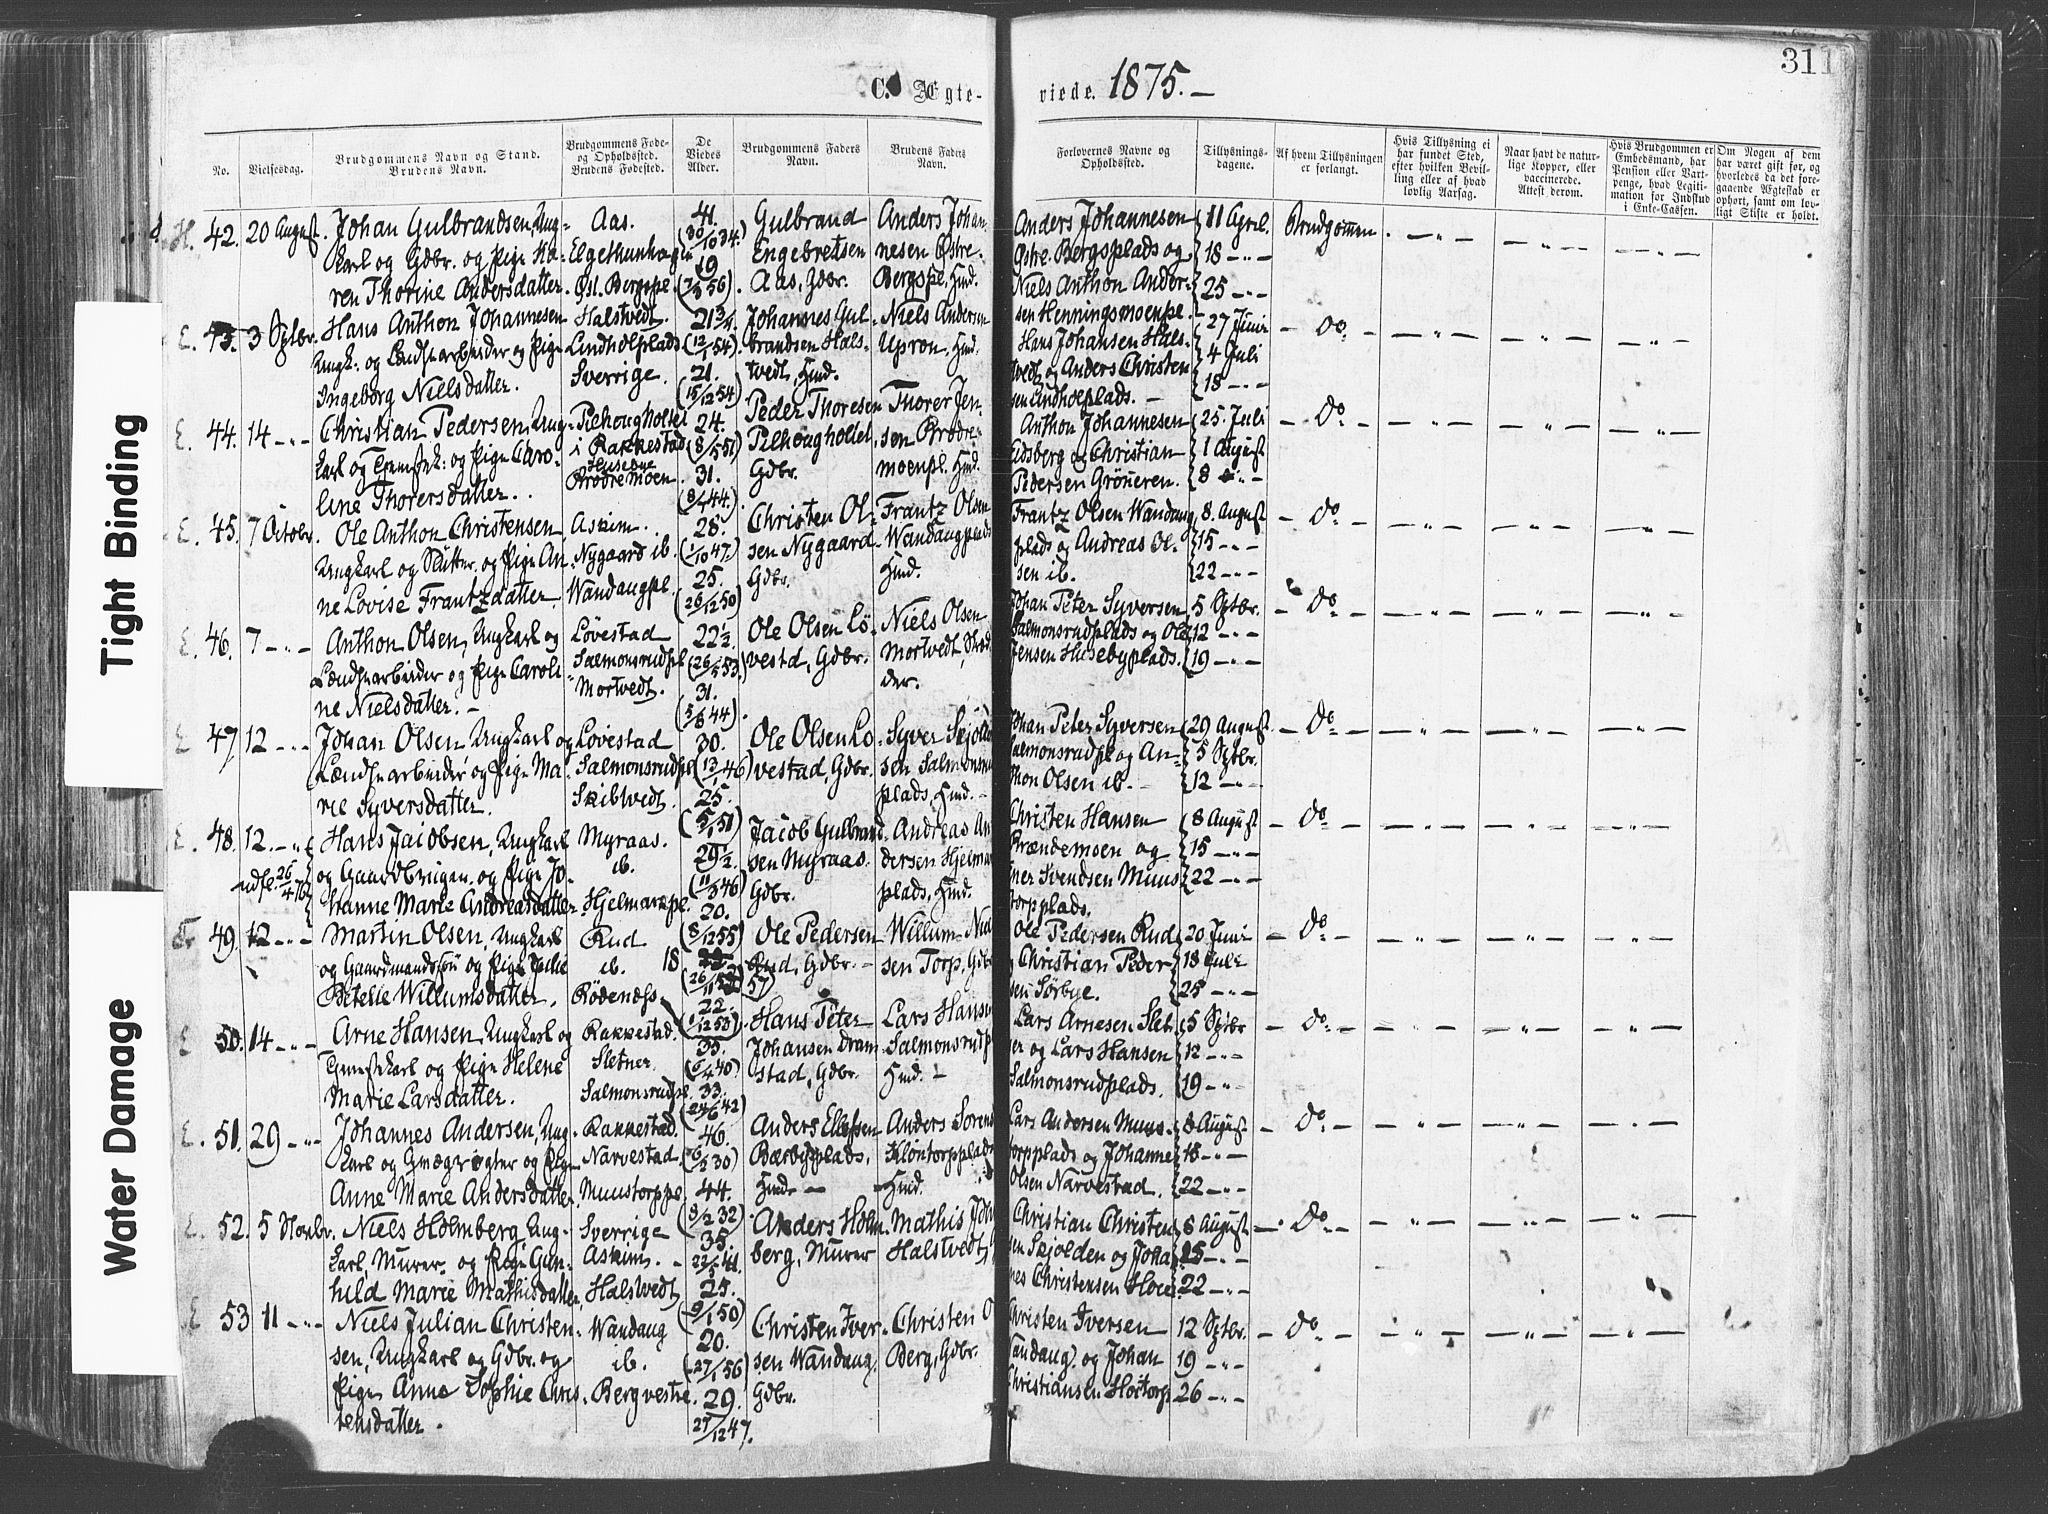 311
C. Ægte-
viede. 1875. —
No.
Vielsesdag.
Brudgommens Navn og Stand.
Brudens Navn.
Brudgommens Føde-
og Opholdssted.
Brudens Fødested.
De
Viedes
Alder.
Brudgommens Faders
Navn.
Brudens Faders
Navn.
Forlovernes Navne og
Opholdssted.
Tillysnings-
dagene.
Af hvem Tillysningen
er forlangt.
Hvis Tillysning ei
har fundet Sted,
efter hvilken Bevil-
ling eller af hvad
lovlig Aarsag.
Naar havt de natur-
lige Kopper, eller
vaccinerede.
Attest derom.
Hvis Brudgommen er
Embedsmand, har
Pension eller Vart-
penge, hvad Legiti-
mation for Indskud
i Enke-Cassen.
Om Nogen af dem
har været gift før, og
hvorledes da det fore-
gaaende Ægteskab er
ophørt, samt om lov-
ligt Skifte er holdt.
42. 20 August.
Johan Gulbrandsen, Ung-
karl og Gdbr. og Pige Ka-
ren Thorine Andersdatter.
Aas.
Øst. Bergspl.
41.
(30/10 34.)
19
(7/3 56)
Gulbrand
Engebretsen
Aas, Gdbr.
Anders Johan-
nesen Østre.
Bergspl, Hmd.
Anders Johannesen
Østre. Bergsplads og
Niels Anthon Ander-
sen Henningsmoenpl.
11 April.
18 — " —
25 — " —
Brudgommen.
E. 43. 3 Sptbr.
Hans Anthon Johannesen
Ungk: og Landsarbeider og Pige
Ingeborg Nielsdatter.
Halstvedt.
Lindholplads
Sverrige.
21 3/4.
(12/1 54)
21.
(15/12 54)
Johannes Gul-
brandsen Hals-
tvedt, Hmd.
Niels Andersen
Upron, Hmd.
Hans Johansen Hals-
tvedt og Anders Christen
sen Lindholplads. —
27 Juni
4 Juli
18 — " —
— Do —
E. 44. 14 — " —
Christian Pedersen, Ung-
karl og Tjenstek: og Pige Caro-
line Thorersdatter.
Pilhougholtet
i Rakkestad
Husebye
Brødremoen
24.
(8/5 51)
31.
(8/4 44.)
Peder Thoresen
Pilhougholtet
Gdbr.
Thorer Jen-
sen Brødre-
moenpl. Hmd.
Anthon Johannesen
Eidsberg og Christian
Pedersen Grøneren.
25. Juli
1 August
8 — " —
— Do —
E. 45. 7 Octobr.
Ole Anthon Christensen
Ungkarl og Slutter. og Pige An-
ne Lovise Frantzdatter.
Askim.
Nygaard ib.
Wandaugpl.
28.
(1/10 47.)
25.
(26/12 50)
Christen Ol-
sen Nygaard
Gdbr.
Frantz Olsen
Wandaugplads
Hmd.
Frantz Olsen Wandaug
plads og Andreas Ol-
sen ib.
8. August
15 — " —
22 — " —
— Do —
E. 46. 7 — " —
Anthon Olsen, Ungkarl og
Landsarbeider og Pige Caroli
ne Nielsdatter. —
Løvestad
Salmonsrudpl
Mortvedt.
22 1/2
(26/5 53.)
31.
(5/8 44)
Ole Olsen Lö-
vestad, Gdbr.
Niels Olsen
Mortvedt, Skræd
der.
Johan Peter Syversen
Salmonsrudplads og Ole
Jensen Husebyplads.
5 Sptbr.
12 — " —
19 — " —
— Do —
E 47. 12 — " —
Johan Olsen, Ungkarl og
Landsarbeider og Pige Ma-
rie Syversdatter.
Løvestad
Salmonsrudpl
Skibtvedt.
30.
(13/1 46)
25.
(5/1 51)
Ole Olsen Lö-
vestad, Gdbr.
Syver Skjolde
sen Salmonsrud
plads, Hmd. —
Johan Peter Syversen
Salmonsrudpl og An-
thon Olsen ib. —
29 August.
5 Sptbr.
12 — " —
— Do —
E. 48. 12. — " —
udfl. 26/4 76
Hans Jacobsen, Ungkarl
og Gaardbrugen. og Pige Jo-
hanne Marie Andreasdatter
Myraas.
ib.
Hjelmarkpl.
29 1/2.
(11/3 46)
20.
(8/12 55)
Jacob Gulbrand
sen Myraas.
Gdbr.
Andreas An
dersen Hjelmar
plads, Hmd.
Christen Hansen
Brændemoen og
Svendsen Muus
torpplads.
8 August
15 — " —
22 — " —
— Do —
49. 12 — " —
Martin Olsen, Ungkarl
og Gaardmandssøn og Pige Julie
Betelie Willumsdatter.
Rud
ib.
Rödenæs
18
(26/11 57)
Ole Pedersen
Rud, Gdbr. —
Willum
sen Torp, Gdbr
Ole Pedersen Rud
og Christian Peder-
sen Sørbye.
20. Juni
18 Juli
25 — " —
— Do —
E 50. 14 — " —
Arne Hansen, Ungkarl og
Tjenstekarl og Pige Helene
Marie Larsdatter.
Rakkestad.
Sletner
Salmonsrudpl.
35.
(6/4 40)
33.
(24/6 42)
Hans Peter
Johansen Dram
stad, Gdbr.
Lars Hansen
Salmonsrudp
Hmd. —
Lars Arnesen Slet-
ner og Lars Hansen
Salmonsrudplads.
5 Sptbr
12 — " —
19 — " —
— Do —
E. 51. 29 — " —
Johannes Andersen, Ung-
karl og Gmægrøgter og Pige
Anne Marie Andersdatter
Rakkestad.
Narvestad.
Muustorppl.
46.
(6/2 30)
44.
(8/2 32)
Anders Ellefsen
Bærbyplads,
Hmd. —
Anders Soren
Klöntorpplads
Hmd.
Lars Andersen Muus-
torpplads og Johanne
Olsen Narvestad.
8 August
15 — " —
22 — " —
— Do —
E 52. 5 Novbr.
Niels Holmberg, Ung-
karl, Murer. og Pige Gun-
hild Marie Mathisdatter,
Sverrige
Askim. —
Halstvedt
35
22/5 41.
25.
(9/1 50)
Anders Holm
berg, Murer
Mathis Joh
Halstvedt,
Christian Christen
sen Skjolden og Joha
nes Christensen Hoie
8 August
15 — " —
22 — " —
— Do —
E 53 11 — " —
Niels Julian Christen-
sen, Ungkarl og Gdbr. og
Pige Anne Sophie Chris-
tensdatter.
Wandaug
ib.
Berg vestre
20.
(27/1 56)
29
27/12 47.
Christen Iver-
sen Wandaug,
Gdbr.
Christen O
Berg, Gdbr.
Christen Iversen
Wandaug, og Johan
Christiansen Hoitorp
12 Sptbr.
19 — " —
26 — " —
— Do —
Tight Binding
Water Damage